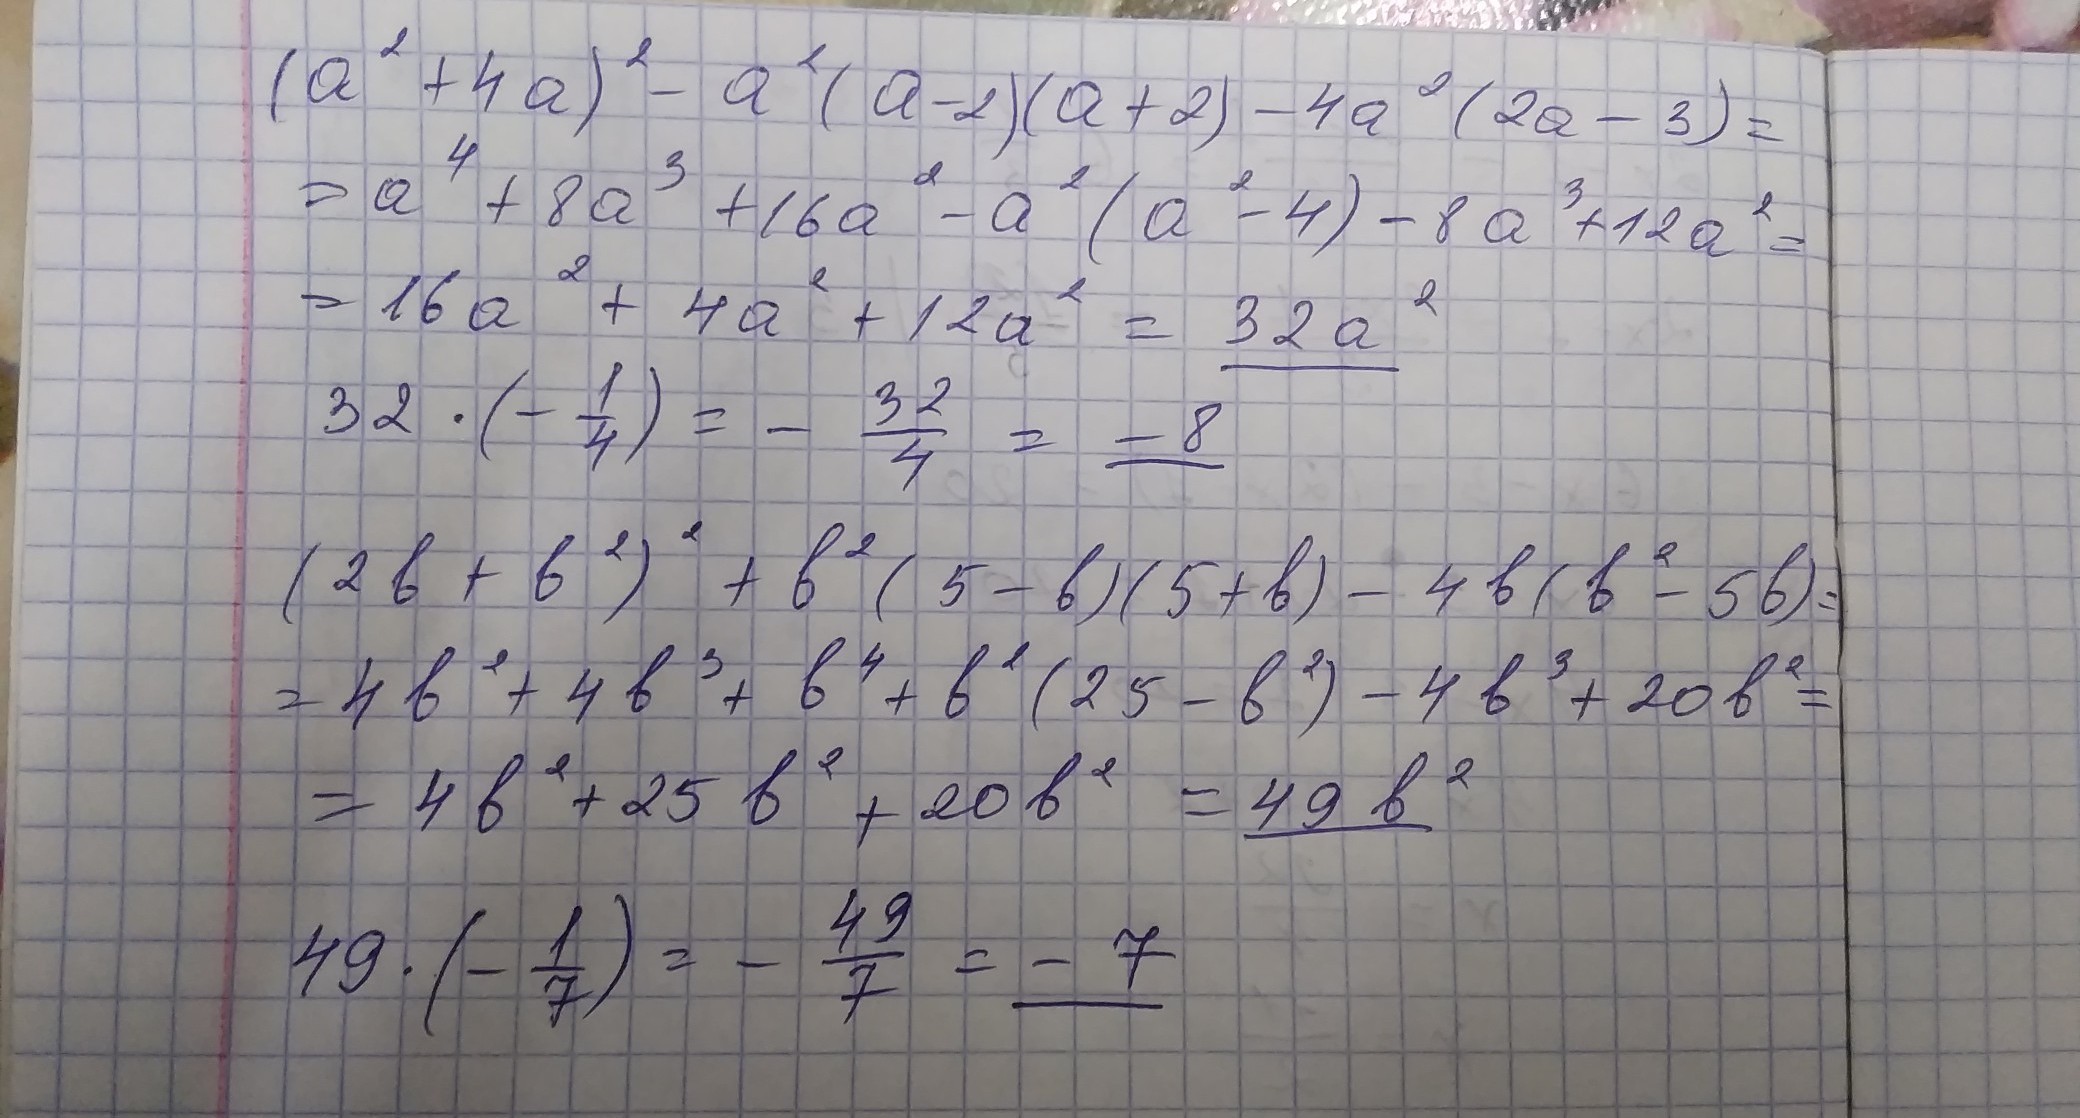 (a² + 4a)² - a²(a - 2)(a + 2) - 4a²(2a - 3) =
= a⁴ + 8a³ + 16a² - a²(a² - 4) - 8a³ + 12a² =
= 16a² + 4a² + 12a² = 32a²
32 · (- 1/4) = - 32/4 = - 8
(2b + b²)² + b²(5 - b)(5 + b) - 4b(b² - 5b) =
= 4b² + 4b³ + b⁴ + b²(25 - b²) - 4b³ + 20b² =
= 4b² + 25b² + 20b² = 49b²
49 · (- 1/7) = - 49/7 = - 7